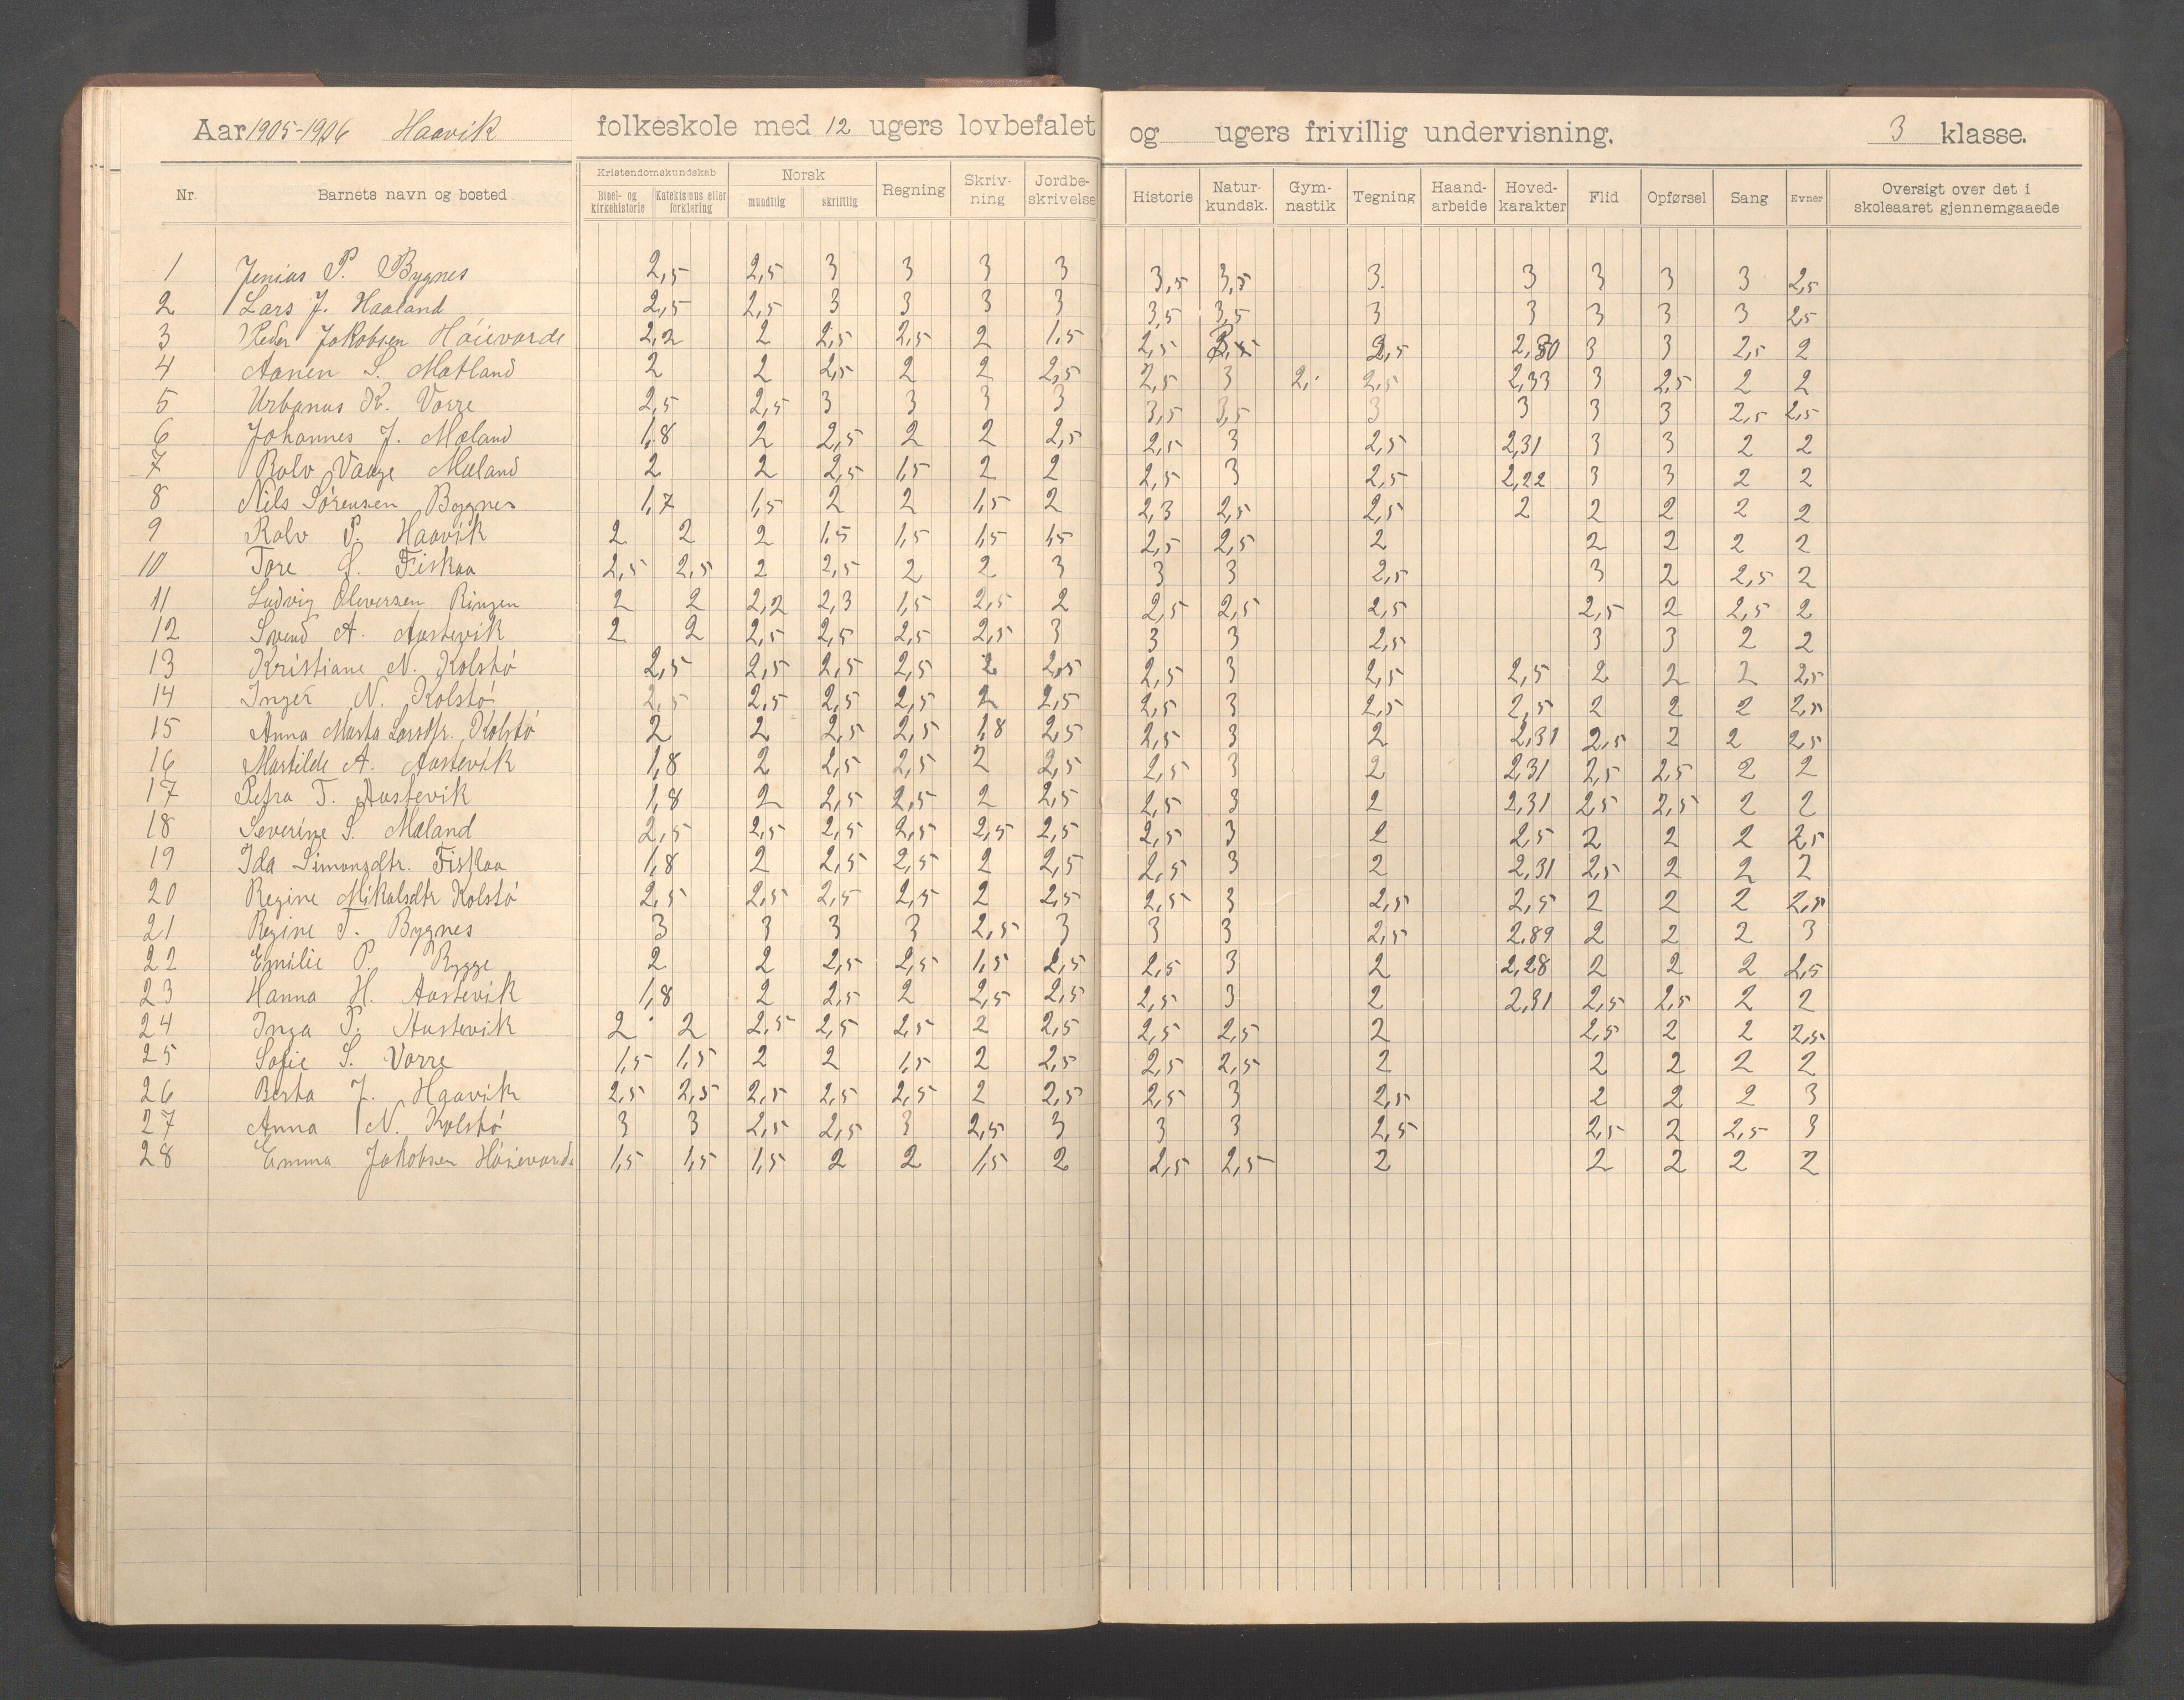 Aar 1905-1906 Haavik folkeskole med 12 ugers lovbefalet og ugers frivillig undervisning. 3 klasse.
Nr. Barnets navn og bosted Kristendomskundskab Bibel- og kirkehistorie Katekismus eller forklaring Norsk mundtlig skriftlig Regning Skriv-ning Jordbe-skrivelse Historie Natur-kundsk. Gym-nastik Tegning Haand-arbeide Hoved-karakter Flid Opførsel Sang Evner Oversigt over det i skoleaaret gjennemgaaede
1 Jenias P. Bygnes 2,5 2,5 3 3 3 3 3,5 3,5 3 3 3 3 3 2,5
2 Lars J. Haaland 2,5 2,5 3 3 3 3 3,5 3,5 3 3 3 3 3 2,5
3 Peder Jakobsen Höievarde 2,2 2 2,5 2,5 2 1,5 2,5 2,5 2,30 3 3 2,5 2
4 Aanen S. Matland 2 2 2,5 2 2 2,5 2,5 3 2,5 2,33 3 2,5 2 2
5 Urbanus K. Vorre 2,5 2,5 3 3 3 3 3,5 3,5 3 3 3 3 2,5 2,5
6 Johannes J. Mæland 1,8 2 2,5 2 2 2,5 2,5 3 2,5 2,31 3 3 2 2
7 Rolv Vaage Mæland 2 2 2,5 1,5 2 2 2,5 3 2,5 2,22 3 3 2 2
8 Nils Sörensen Bygnes 1,7 1,5 2 2 1,5 2 2,3 2,5 2,5 2 2 2 2 2
9 Rolv P. Haavik 2 2 2 1,5 1,5 1,5 1,5 2,5 2,5 2 2 2 2 2
10 Tore S. Fiskaa 2,5 2,5 2 2,5 2 2 3 3 3 2,5 3 2 2,5 2
11 Ludvig Oleversen Ringen 2 2 2,2 2,3 1,5 2,5 2 2,5 2,5 2,5 2,5 2 2,5 2
12 Svend A. Aastevik 2 2 2,5 2,5 2,5 2,5 3 3 3 2,5 3 3 2 2
13 Kristiane N. Kolstö 2,5 2,5 2,5 2,5 2 2,5 2,5 3 2,5 2,5 2 2 2 2,5
14 Inger N. Kolstö 2,5 2,5 2,5 2,5 2 2,5 2,5 3 2,5 2,5 2 2 2 2,5
15 Anna Marta Larsdtr. Kolstö 2 2 2,5 2,5 1,8 2,5 2,5 3 2 2,31 2,5 2 2 2,5
16 Martilde A. Aastevik 1,8 2 2,5 2,5 2 2,5 2,5 3 2 2,31 2,5 2,5 2 2
17 Petra T. Aastevik 1,8 2 2,5 2,5 2 2,5 2,5 3 2 2,31 2,5 2,5 2 2
18 Severine S. Mæland 2,5 2,5 2,5 2,5 2,5 2,5 2,5 3 2 2,5 2 2 2 2,5
19 Ida Simonsdtr. Fiskaa 1,8 2 2,5 2,5 2 2,5 2,5 3 2 2,31 2,5 2 2 2
20 Regine Mikalsdtr Kolstö 2,5 2,5 2,5 2,5 2 2,5 2,5 3 2,5 2,5 2 2 2 2,5
21 Regine T. Bygnes 3 3 3 3 2,5 3 3 3 2,5 2,89 2 2 2 3
22 Emilie P. Rygge 2 2 2,5 2,5 1,5 2,5 2,5 3 2 2,28 2 2 2 2,5
23 Hanna H. Aastevik 1,8 2 2,5 2 2,5 2,5 2,5 3 2 2,31 2,5 2,5 2 2
24 Inga P. Aastevik 2 2 2,5 2,5 2,5 2 2,5 2,5 2,5 2 2,5 2 2 2,5
25 Sofie S. Vorre 1,5 1,5 2 2 1,5 2 2,5 2,5 2,5 2 2 2 2 2
26 Berta J. Haavik 2,5 2,5 2,5 2,5 2,5 2 2,5 2,5 3 2,5 2 2 2 3
27 Anna N. Kolstö 3 3 2,5 2,5 3 2,5 3 3 3 2,5 2,5 2 2,5 3
28 Emma Jakobsen Höievarde 1,5 1,5 1,5 2 2 1,5 2 2,5 2,5 2 2 2 2 2